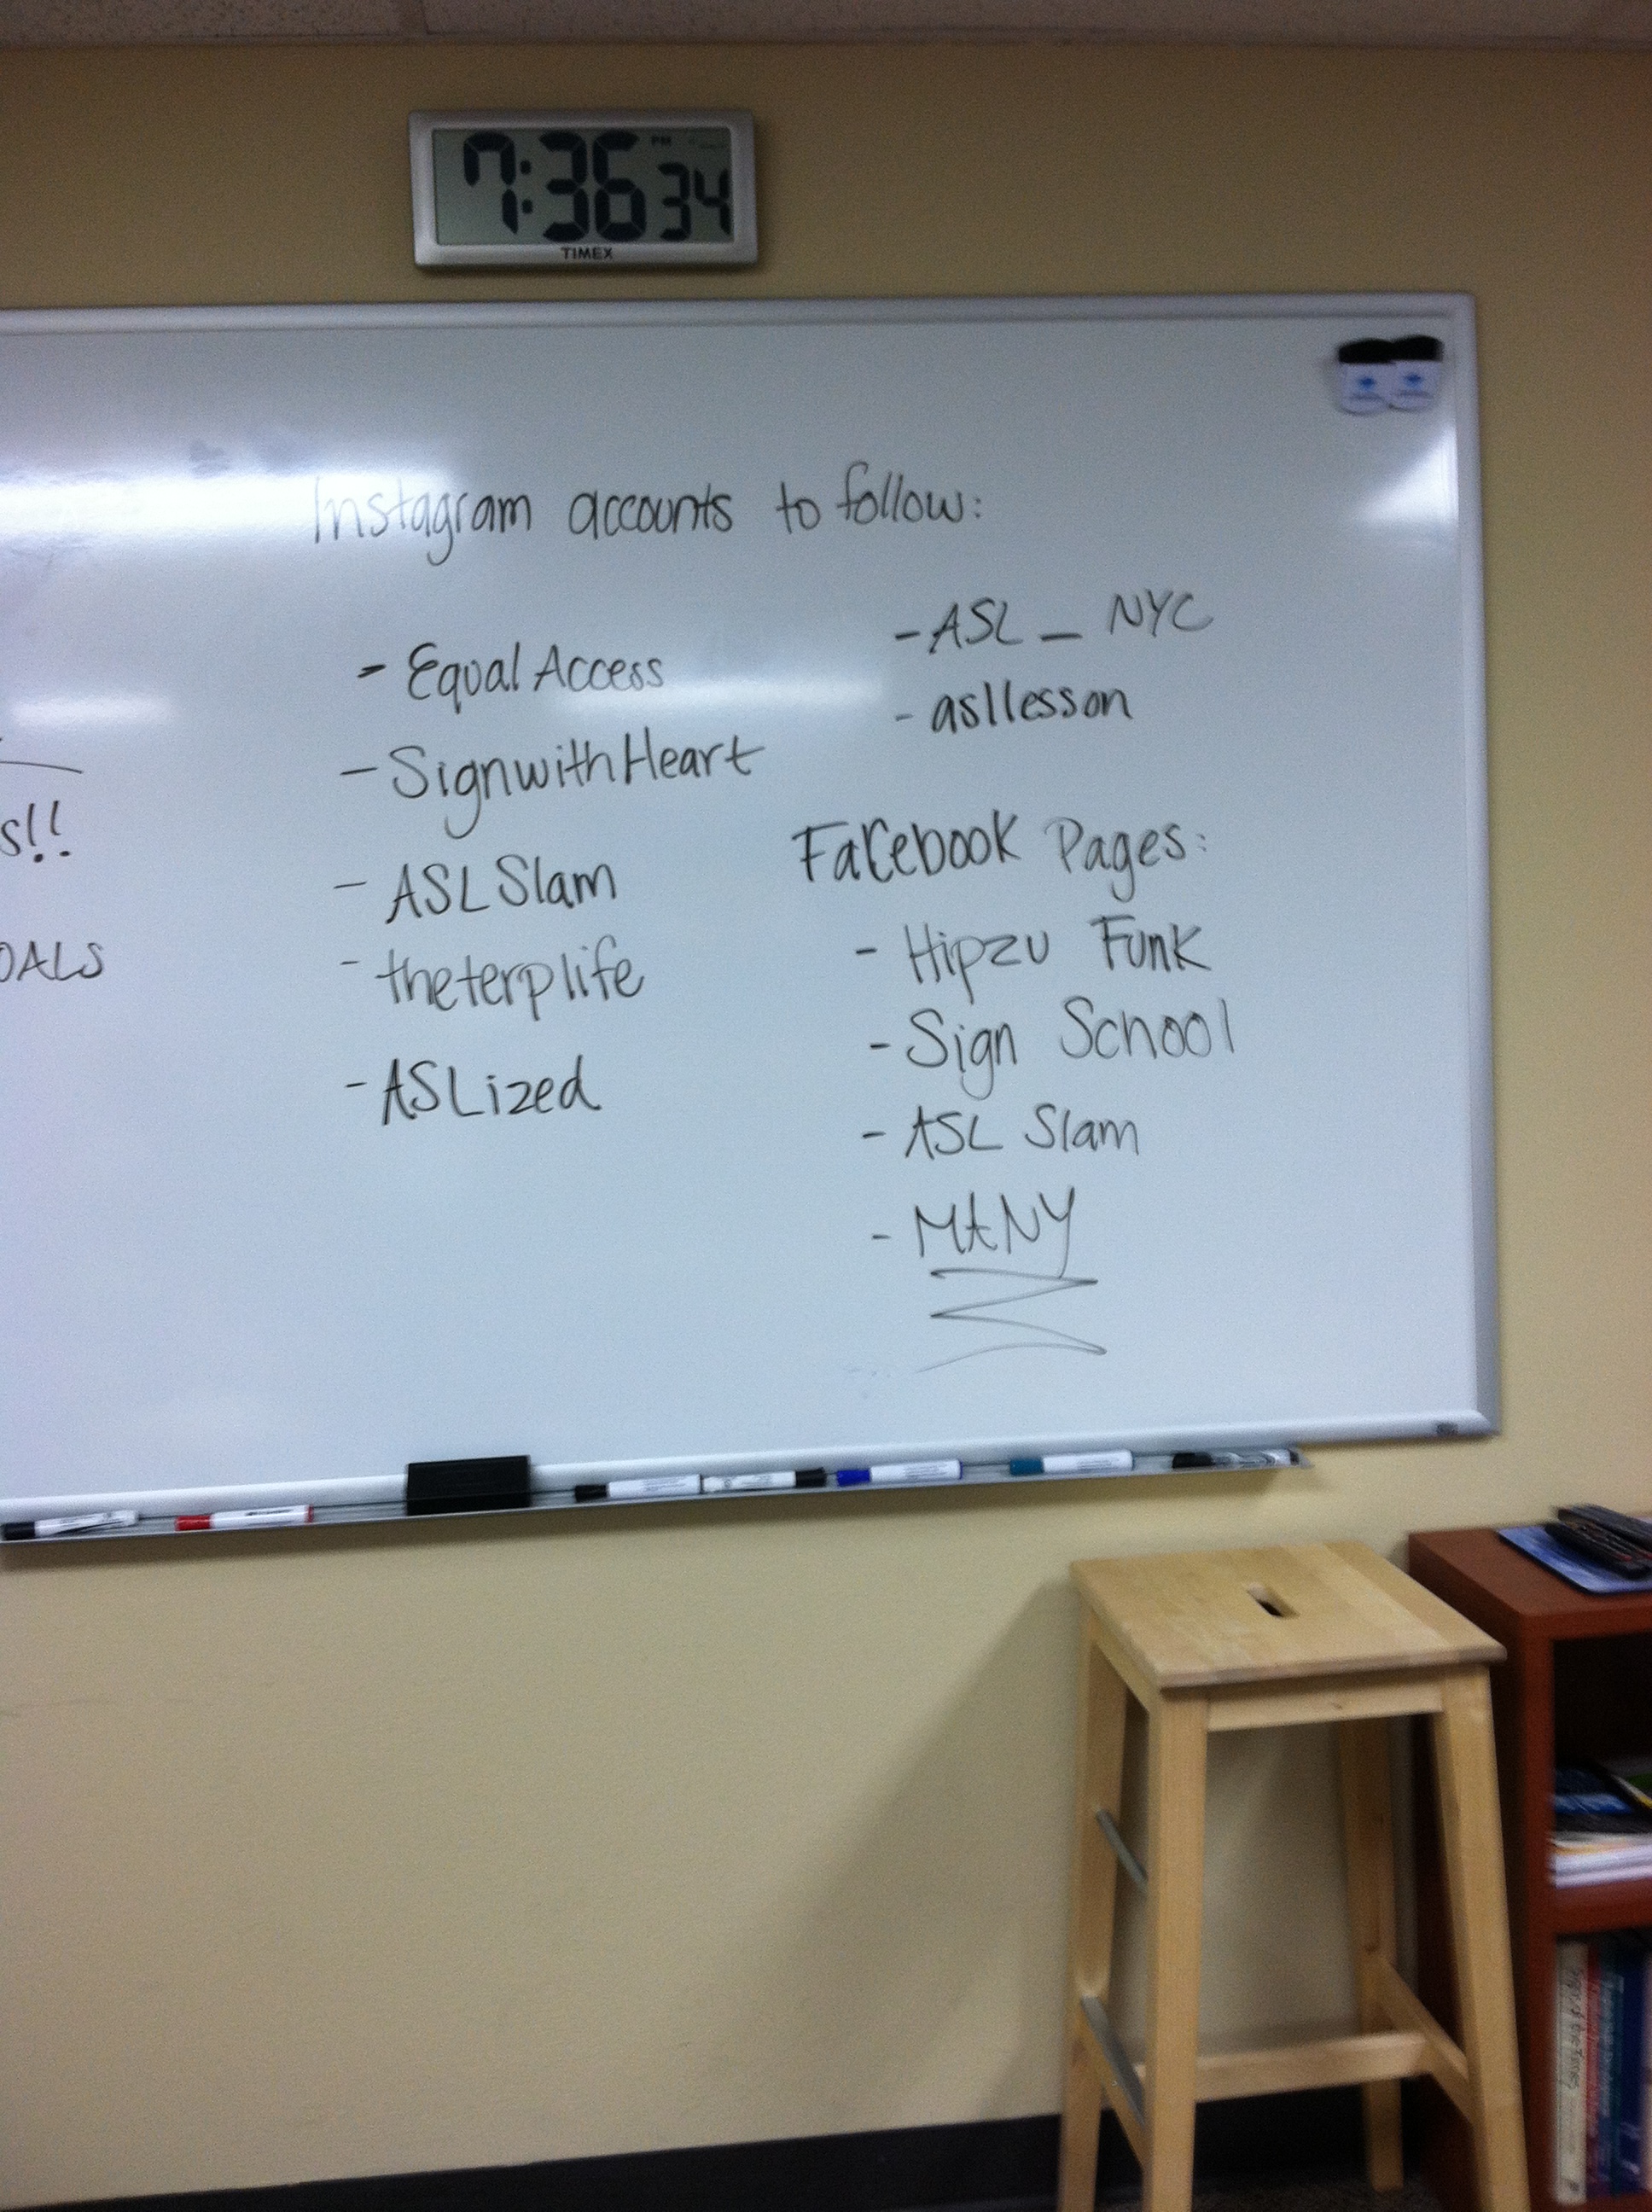 7:36 34
PM
TIMEX
Instagram accounts to follow:
- Equal Access
- SignwithHeart
- ASL Slam
- theterplife
- ASLized
- ASL _ NYC
- asllesson
Facebook Pages:
- Hipzu Funk
- Sign School
- ASL Slam
- MANY
s!!
OALS
Sign of the Times